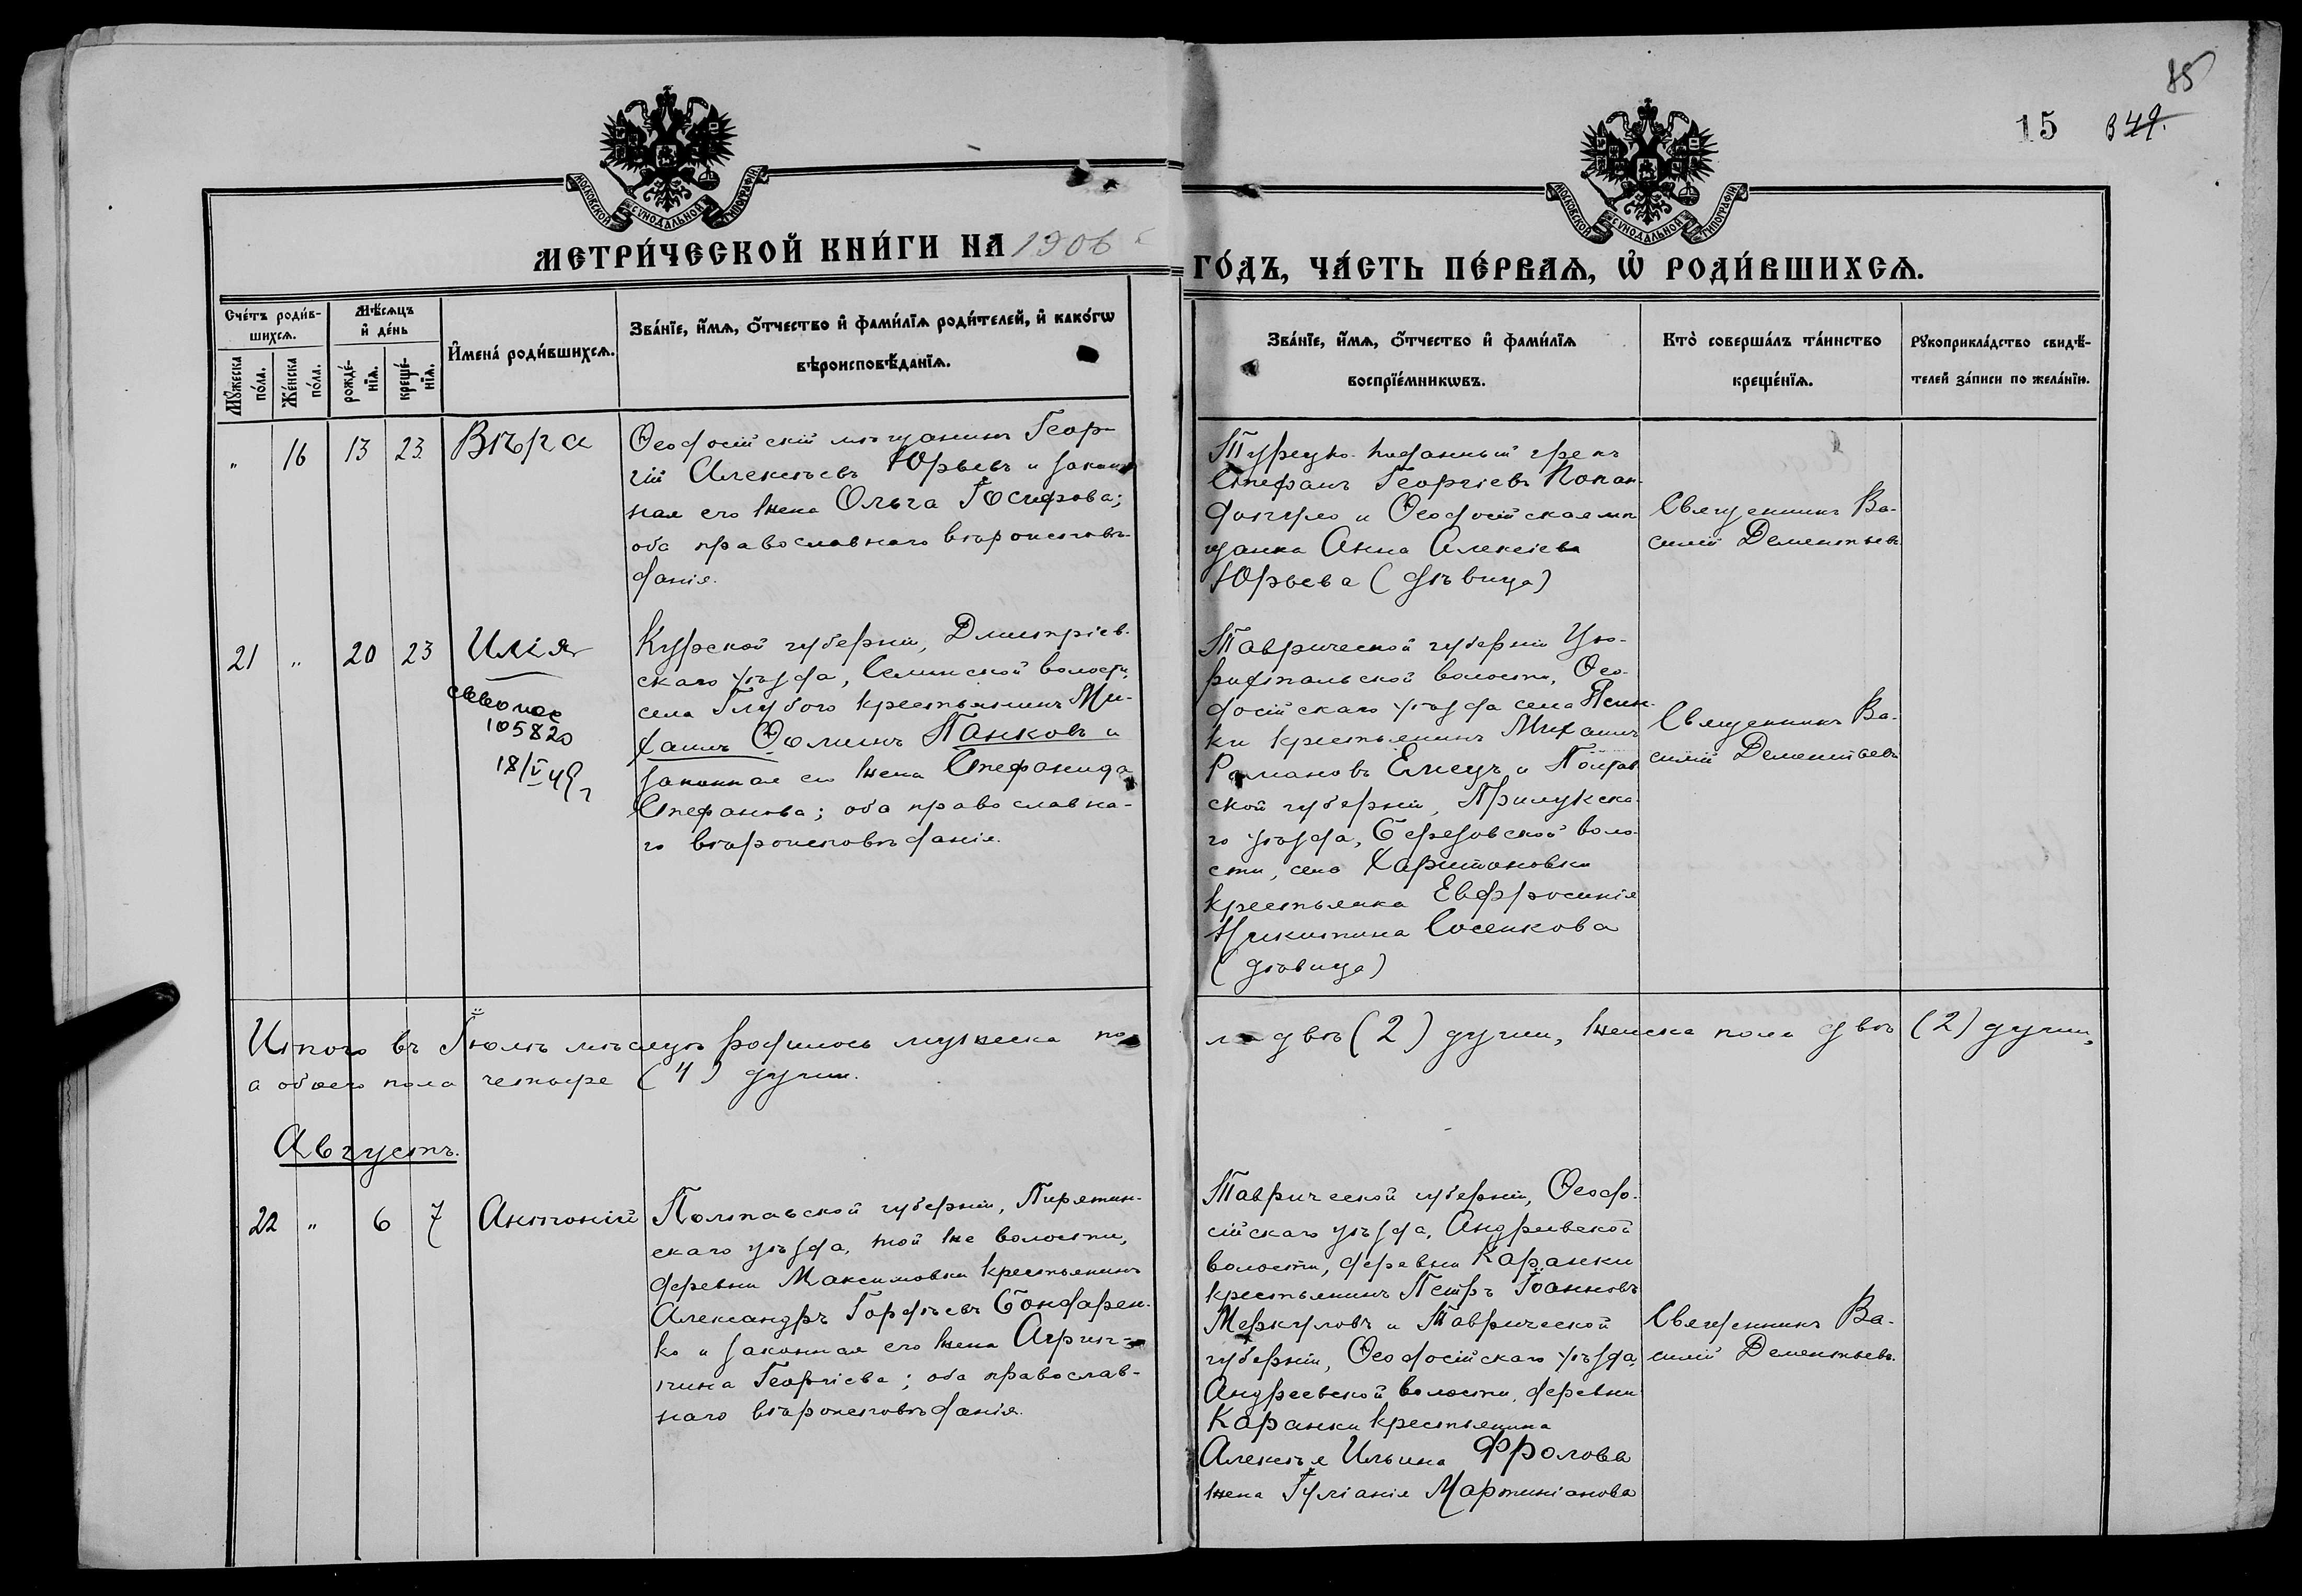 85
15 349.
МОСКОВСКОЙ СѴНОДАЛЬНОЙ ТИПОГРАФІИ
МОСКОВСКОЙ СѴНОДАЛЬНОЙ ТИПОГРАФІИ
МЕТРИ́ЧЕСКОЙ КНИ́ГИ НА 1906
ГО́ДЪ, ЧА́СТЬ ПЕ́РВАѦ, Ѡ҆ РОДИ́ВШИХСѦ.
Сче́тъ роди́в-
шихсѧ.
Мꙋ́жеска по́ла.
Же́нска по́ла.
Мѣ́сѧцъ
и҆ де́нь
рожде́-
нїѧ.
креще́-
нїѧ.
И҆мена̀ роди́вшихсѧ.
Зва́нїе, и҆́мѧ, ѻ҆́тчество и҆ фами́лїѧ роди́телей, и҆ како́гѡ
вѣроисповѣ́данїѧ.
Зва́нїе, и҆́мѧ, ѻ҆́тчество и҆ фами́лїѧ
воспрїе́мникѡвъ.
Кто̀ соверша́лъ та́инство
креще́нїѧ.
Рꙋкоприкла́дство свидѣ́-
телей за́писи по жела́нїю.
" 16 13 23 Вѣра
Ѳеодосійскій мѣщанинъ Геор-
гій Алексѣевъ Юрьевъ и закон
ная его жена Ольга Іосифова;
оба православнаго вѣроисповѣ-
данія.
Турецко-поданный грекъ
Стефанъ Георгіевъ Попан-
допуло и Ѳеодосійская мѣ
щанка Анна Алексіева
Юрьева (дѣвица)
Священникъ Ва-
силій Дементьевъ
21 " 20 23 Илія
105820
18/V 49 г
Курской губерніи, Дмитріев-
скаго уѣзда, Селинской волости,
села Глубого крестьянинъ Ми-
хаилъ Ѳоминъ Панковъ и
законная его жена Стефанида
Стефанова; оба православна-
го вѣроисповѣданія.
Таврической губерніи Цю-
рихтальской волости, Ѳео-
досійскаго уѣзда села
ки крестьянинъ Михаилъ
Романовъ Елецъ и Полтав
ской губерніи, Прилукска-
го уѣзда, Березовской воло-
сти, села Харитоновки
крестьянка Евфросинія
Никитина Сосенкова
(дѣвица)
Священникъ Ва-
силій Дементьевъ
Итого въ Іюлѣ мѣсяцѣ родилось мужеска по
ла двѣ (2) души, женска пола двѣ (2) души,
а обоего пола четыре (4) души.
Августъ.
22 " 6 7 Антоній
Полтавской губерніи, Пирятин-
скаго уѣзда, той же волости,
деревни Максимовки крестьянинъ
Александръ Гордѣевъ Бондарен-
ко и законная его жена Агрип-
пина Георгіева; оба православ-
наго вѣроисповѣданія.
Таврической губерніи, Ѳеодо-
сійскаго уѣзда, Андреевской
волости, деревни Каранки
крестьянинъ Петръ Іоанновъ
Меркуловъ и Таврической
губерніи, Ѳеодосійскаго уѣзда,
Андреевской волости, деревни
Каранки крестьянина
Алексѣя Ильина Фролова
жена Іуліанія Мартиніанова
Священникъ Ва-
силій Дементьевъ.